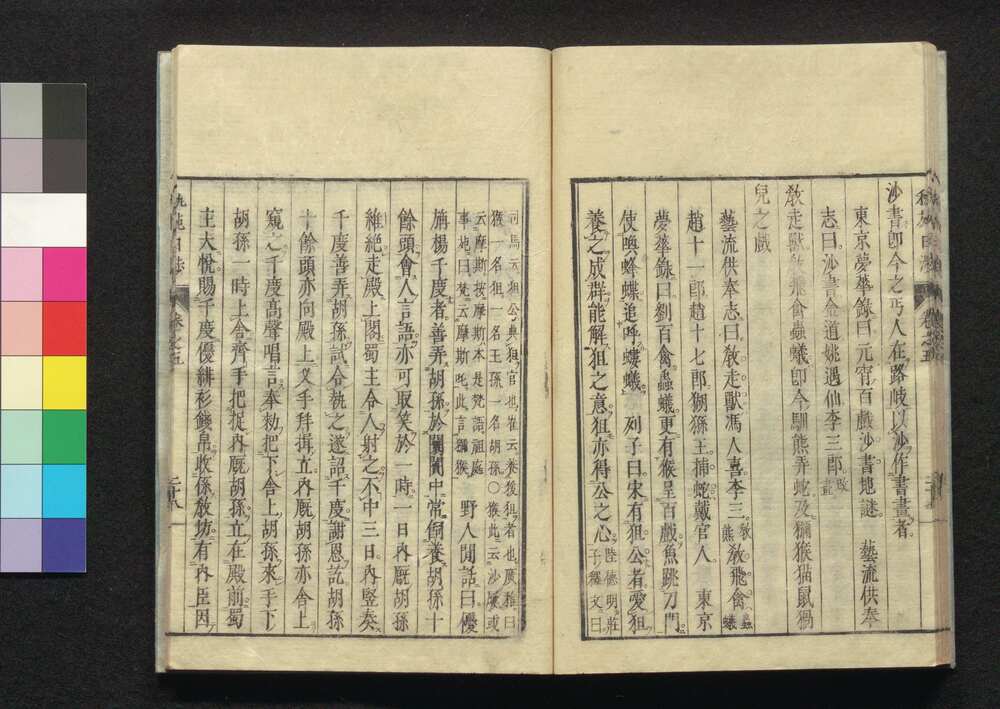 沙書即今之丐人在路岐以沙作書畫者
東京夢華錄曰元宵百戲沙書地謎　藝流供奉
志曰沙書金道姚遇仙李三郎改畫
教走獸教飛禽蟲蟻即今馴熊弄蛇及獼猴猫鼠猧
兒之戲
藝流供奉志曰教走獸馮人喜李三教熊教飛禽蟲蟻
趙十一郎趙十七郎猢猻王捕蛇戴官人　東京
夢華錄曰劉百禽蟲蟻更有猴呈百戲魚跳刀門
使喚蜂蝶追呼螻蟻　列子曰宋有狙公者愛狙
養之成群能解狙之意狙亦得公之心陸德明莊子釋文曰
司馬云狙公典狙官也崔云養猨狙者也廣雅曰
猴一名狙一名王孫一名胡孫○猴此云沙厥或
云摩斯按摩斯本是梵語祖庭
事苑曰梵云摩斯吒此言獼猴　野人閒話曰優
旃楊千度者善弄胡孫於闤闠中常飼養胡孫十
餘頭會人言語亦可取笑於一時一日內厩胡孫
維絶走殿上閣蜀主令人射之不中三日內竪奏
千度善弄胡孫試令執之遂詔千度謝恩訖胡孫
十餘頭亦向殿上叉手拜揖立內厩胡孫亦舍上
窺之千度高聲唱言奉勅把下舍上胡孫來手下
胡孫一時上舍齊手把捉內厩胡孫立在殿前蜀
主大悅賜千度優緋衫錢帛收係教坊有內臣因